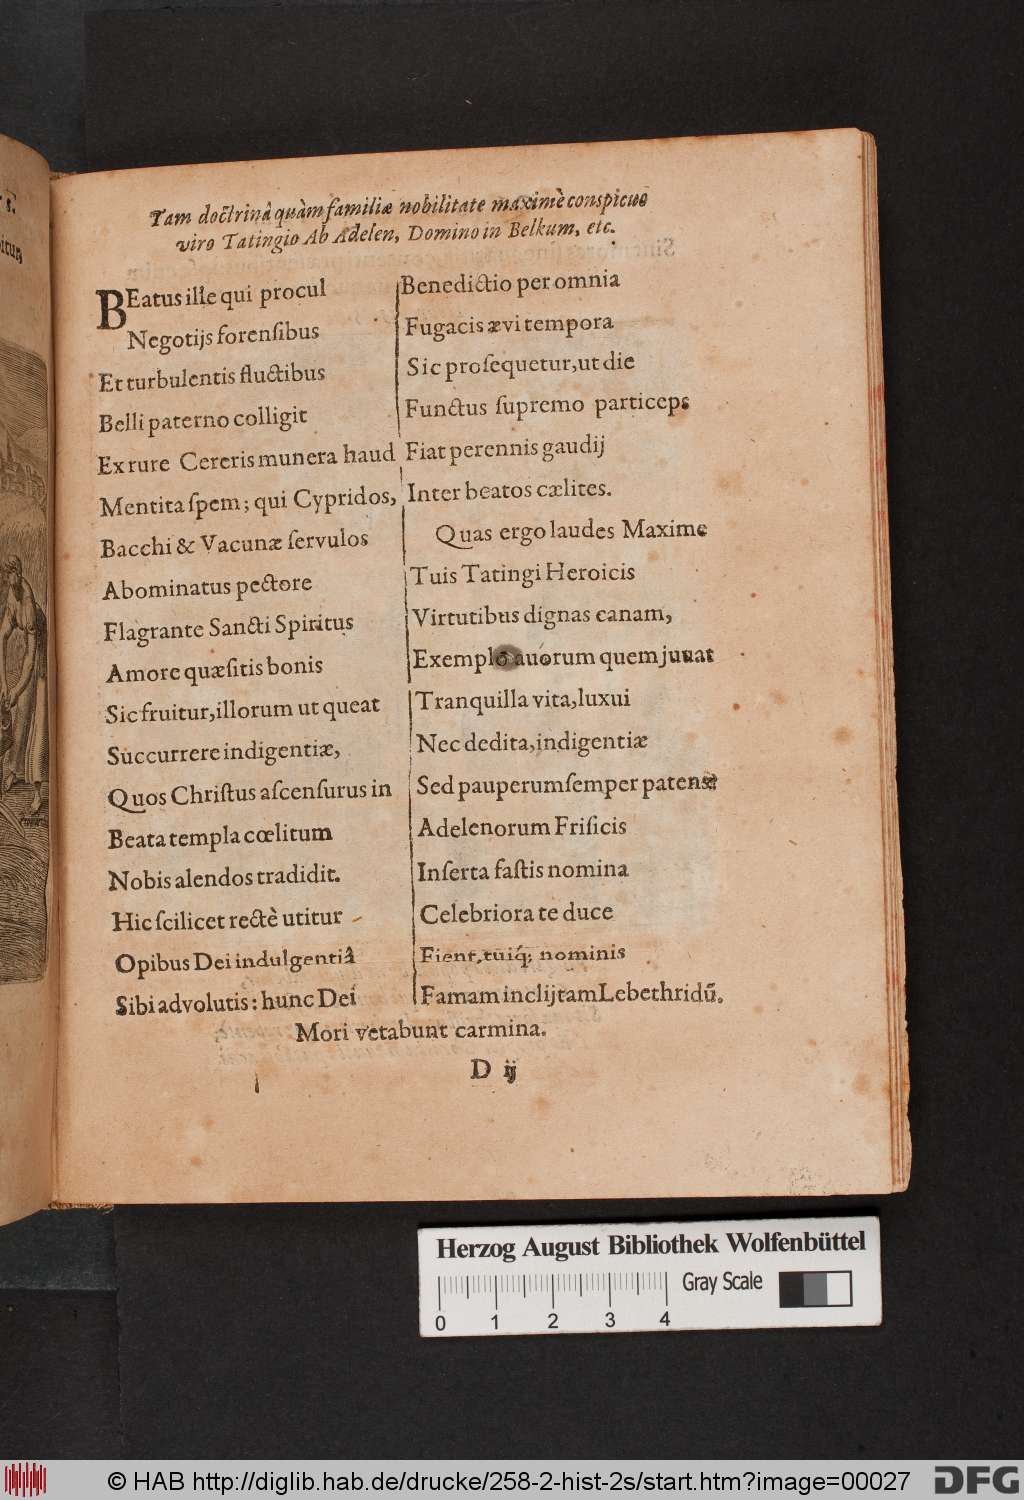 Tam doctrinâ quàm familiæ nobilitate maximè conspicuo
viro Tatingio Ab Adelen, Domino in Belkum, etc.
BEatus ille qui procul
Negotijs forensibus
Et turbulentis fluctibus
Belli paterno colligit
Ex rure Cereris munera haud
Mentita spem; qui Cypridos,
Bacchi & Vacunæ servulos
Abominatus pectore
Flagrante Sancti Spiritus
Amore quæsitis bonis
Sic fruitur, illorum ut queat
Succurrere indigentiæ,
Quos Christus ascensurus in
Beata templa cœlitum
Nobis alendos tradidit.
Hic scilicet rectè utitur
Opibus Dei indulgentiâ
Sibi advolutis: hunc Dei
Benedictio per omnia
Fugacis ævi tempora
Sic prosequetur, ut die
Functus supremo particeps
Fiat perennis gaudij
Inter beatos cælites.
Quas ergo laudes Maxime
Tuis Tatingi Heroicis
Virtutibus dignas canam,
Exemplo avórum quem juuat
Tranquilla vita, luxui
Nec dedita, indigentiæ
Sed pauperum semper patens?
Adelenorum Frisicis
Inserta fastis nomina
Celebriora te duce
Fient, tuiq́; nominis
Famam inclijtam Lebethridū.
Mori vetabunt carmina.
D ij
Herzog August Bibliothek Wolfenbüttel
Gray Scale
0 1 2 3 4
© HAB http://diglib.hab.de/drucke/258-2-hist-2s/start.htm?image=00027
DFG